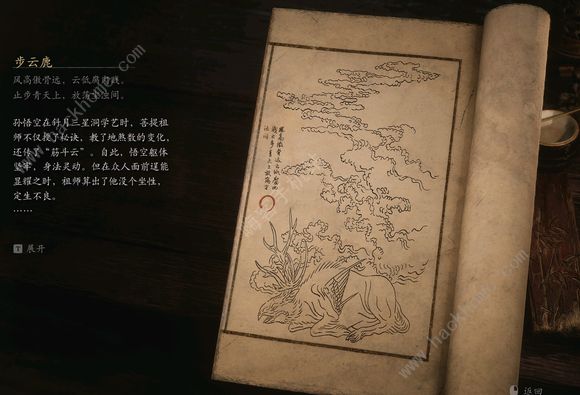 步云鹿
风高傲骨远，云低腐
止步青天上，放荡浊间。
孙悟空在斜月三星洞学艺时，菩提祖
师不仅授了秘诀，教了地煞数的变化，
还传下“筋斗云”。自此，悟空躯体
坚牢，身法灵动。但在众人面前逞能
显耀之时，祖师算出了他没个坐性，
定生不良。
……
T 展开
返回
www.hackhome.com